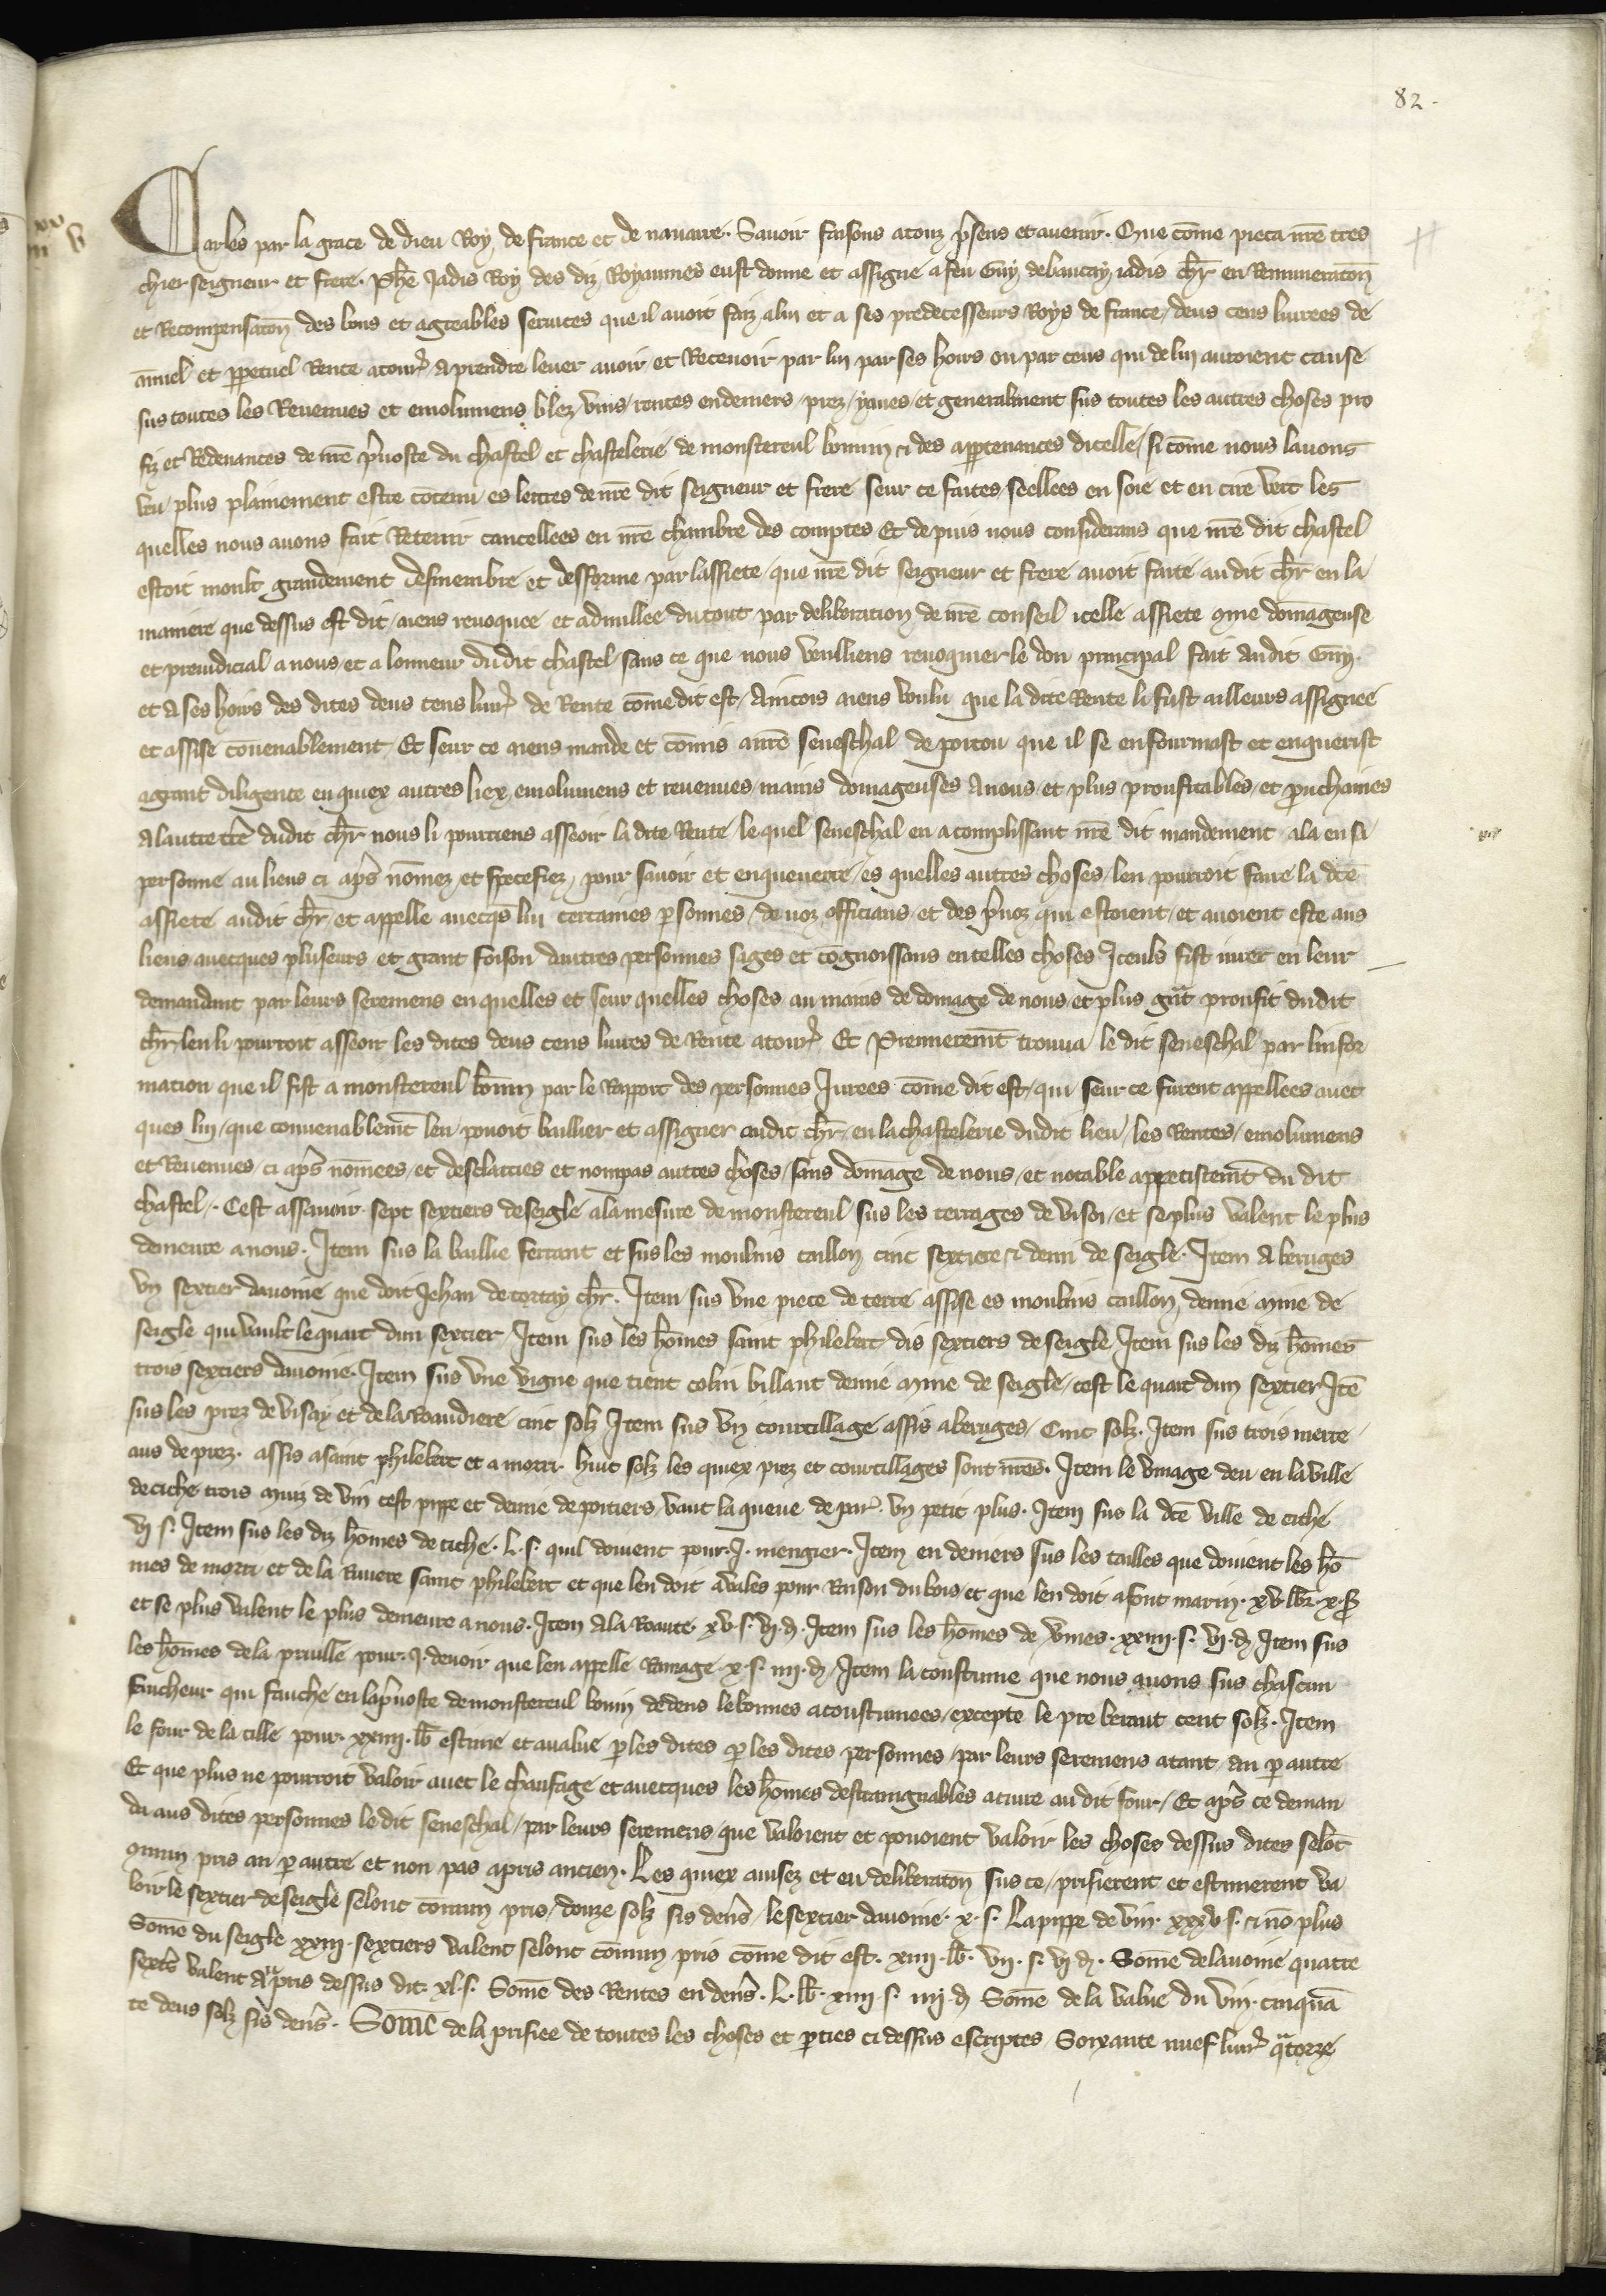 82.
Carles par la grace de dieu Roy de france et de nauarre. Sauoir faisons a touz p̃sens et auenir. Que cõme pieca nr̃e tres
chier seigneur et frere. Ph̃e Jadis Roy des diz Royaumes eust donne et assigne a feu Guy de baucay iadis ch̃r en Remuneratõn
et Recompensatõn des bons et agreables seruices que il auoit faiz a lui et a ses predecesseurs Roys de france / deus cens liurees de
ãnuel et ꝑpetuel Rente a tour̃. A prendre leuer auoir et Receuoir par lui par ses hoirs ou par ceus qui de lui auroient cause
sus toutes les Reuenues et emolumens blez / vins / rentes en deniers / prez / yaues / et generalment sus toutes les autres choses pro
fiz et Redeuances de nr̃e p̃uoste du chastel et chastelerie de monstereul bonnin et des appartenances dicelle / si cõme nous lauons
veu plus plainement estre cõtenu es lettres de nr̃e dit seigneur et frere seur ce faites / seellees en soie et en cire vert les
quelles nous auons fait Retenir cancellees en nr̃e chambre des comptes Et depuis nous considerans que nr̃e dit chastel
estoit moult grandement desmembre et desforme par lassiete / que nr̃e dit seigneur et frere auoit faite au dit ch̃r en la
maniere que dessus est dit / aiens reuoquee et adnullee du tout par deliberation de nr̃e conseil icelle assiete cõme domageuse
et preiudicial a nous et a lonneur du dit chastel / sans ce que nous veulliens reuoquier le don principal fait au dit Guy.
et a ses hoirs des dites deus cens liur̃ de Rente cõme dit est / Aincois aiens voulu que la dite Rente li fust ailleurs assignee
et assise cõuenablement / Et seur ce aiens mande et cõmis a nr̃e seneschal de poitou que il se enfourmast et enquerist
a grant diligence en quiex autres liex emolumens et reuenues / mains domageuses a nous / et plus proufitables / et ꝓuchaines
a lautre tr̃e dudit ch̃r nous li pourriens asseoir la dite Rente / le quel seneschal en acomplissant nr̃e dit mandement / ala en sa
personne au lieus ci apr̃s nõmez et specefiez / pour sauoir et enquerre / es quelles autres choses / len pourroit faire la dc̃e
assiete au dit ch̃r / et appelle auecq̃s lui certaines ꝑsonnes / de noz officiaus / et des p̃uoz qui estoient / et auoient este aus
lieus auecques pluseurs et grant foison dautres personnes sages et cõgnoissans en telles choses Iceuls fist iurer en leur
demandant par leurs seremens en quelles et seur quelles choses au mains de domage de nous / et plus gãt proufit du dit
ch̃r len li pourroit asseoir les dites deus cens liures de Rente a tour̃. Et Premierem̃t trouua le dit seneschal par linfor
mation que il fist a monstereul bõnin par le Rapport des personnes Iurees cõme dit est / qui seur ce furent appellees auec
ques lui / que conuenablem̃t len pouoit baillier et assigner audit ch̃r / en la chastelerie dudit lieu / les Rentes / emolumens
et Reuenues / ci apr̃s nõmees / et desclarcies et nompas autres choses / sans dõmage de nous / et notable appeticem̃t du dit
chastel /. Cest assauoir sept sextiers de seigle a la mesure de monstereul sus les terrages de visai / et se plus valent le plus
demeure a nous. Item sus la baillie ferrant et sus les moulins taillon cinc sextiers et demi de seigle. Item a beruges
vn sextier dauoine que doit Iehan de torsay ch̃r. Item sus vne piece de terre assise es moulins taillon / demie mine de
seigle qui vault le quart dun sextier Item sus les hõmes saint philebert / dis sextiers de seigle Item sus les diz hõmes
trois sextiers dauoine. Item sus vne vigne que tient colin billaut demie mine de seigle / cest le quart dun sextier Itẽ
sus les prez de visay et de la Roaudiere cinc solz Item sus vn courtillage assis a beruges / Cinc solz. Item sus trois merre
aus de prez. assis a saint philebert et a morri huit solz les quiex prez et courtillages sont nr̃es. Item le vinage deu en la ville
de ciche trois muiz de vin cest pippe et demie de poitiers / vaut la queue de par̃. vn petit plus. Item sus la dc̃e ville de ciche
vj s̃. Item sus les diz hõmes de ciche. L. s̃. quil doiuent pour. j. mengier. Item en deniers sus les tailles que doiuent les hõ
mes de morri et de la Riuiere saint philebert et que len doit a vales pour Raison du bois et que len doit a font marin. xv. lb̃r. x. s̃
et se plus valent le plus demeure a nous. Item a la Roaute. xv. s̃. vj. d̃. Item sus les hõmes de vines. xxiiij. s̃. vj. d̃ Item sus
les hõmes de la priulle pour. j. deuoir que len appelle Ramage. x. s̃. iiij. d̃ / Item la coustume que nous auons sus chascun
faucheur qui fauche en la p̃uoste de monstereul bonin dedens le bonnes acoustumees / excepte le pre beraut cent solz. Item
le four de la cille pour. xxiiij. lb̃ estime et aualue ꝑ les dites ꝑ les dites personnes / par leurs seremens a tant an ꝑ autre
Et que plus ne pourroit valoir auec le chaufage et auecques les hõmes destraignables a cuire au dit four / Et apr̃s ce deman
da aus dites personnes le dit seneschal / par leurs seremens / que valoient et pouoient valoir les choses dessus dites selõc
cõmun pris an ꝑ autre et non pas a pris ancien. Les quiex auisez et eu deliberatõn sus ce / prisierent et estimerent va
loir le sextier de seigle selonc cõmun pris / douze solz sis den̄s / le sextier dauoine. x. s̃. La pippe de vin. xxxv s̃. et nõ plus
Sõme du seigle xxiij. sextiers valent selonc cõmun pris cõme dit est. xiiij. lb̃. vij. s̃. vj d̃. Sõme de lauoine quatre
sext̃s valent a pris dessus dit. xl. s̃. Sõme des Rentes en den̄s. L. lb̃. xiiij s̃. iiij. d̃ Sõme de la value du vin. cinquã
te deus solz sis den̄s. Sõme de la prisiee de toutes les choses et ꝑties ci dessus escriptes / Soixante nuef liur̃ q̃torze